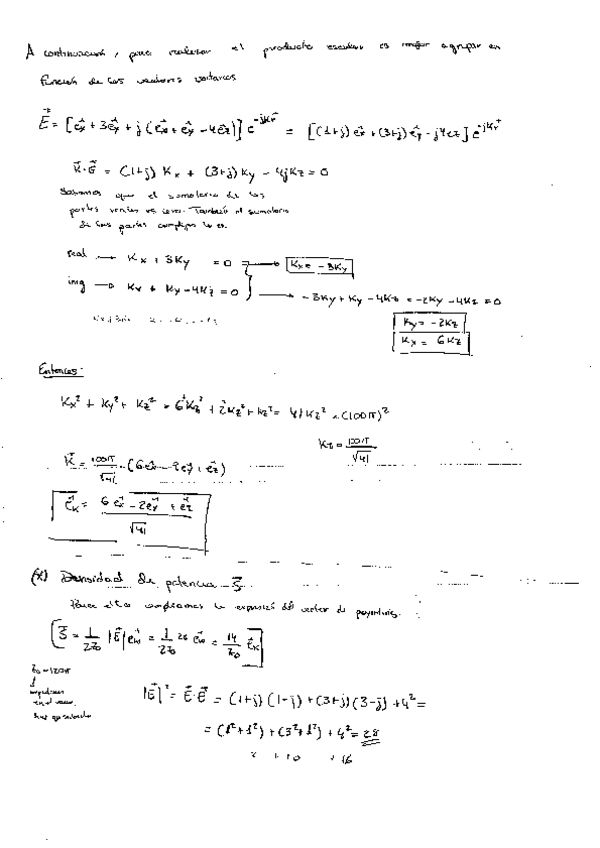 A continuación, para realizar el producto escalar es mejor agrupar en
función de los vectores unitarios
E⃗ = [e⃗x + 3e⃗y + j(e⃗x + e⃗y - 4e⃗z)] e^-jKr⃗ = [(1+j) e⃗x + (3+j) e⃗y - j4e⃗z] e^-jKr⃗
K⃗·E⃗ = (1+j) Kx + (3+j) Ky - 4jKz = 0
Sabemos que el sumatorio de las
partes reales es cero. También el sumatorio
de las partes complejas lo es.
real → Kx + 3Ky = 0 → Kx = -3Ky
img → Kx + Ky - 4Kz = 0 → -3Ky + Ky - 4Kz = -2Ky - 4Kz = 0
Ky = -2Kz
Kx = 6Kz
Entonces:
Kx² + Ky² + Kz² = 6²Kz² + 2²Kz² + Kz² = 41Kz² = (100π)²
Kz = 100π/√41
K⃗ = 100π/√41 (6e⃗x - 2e⃗y + e⃗z)
e⃗k = (6e⃗x - 2e⃗y + e⃗z)/√41
(*) Densidad de potencia S⃗
Para ello empleamos la expresión del vector de poynting.
S⃗ = 1/2z₀ |E⃗| e⃗k = 1/2z₀ 28 e⃗k = 14/z₀ e⃗k
z₀ = 120π
impedancia
en el vacío
|E⃗|² = E⃗·E⃗ = (1+j)(1-j) + (3+j)(3-j) + 4² =
= (1²+1²) + (3²+1²) + 4² = 28
+ 10 + 16